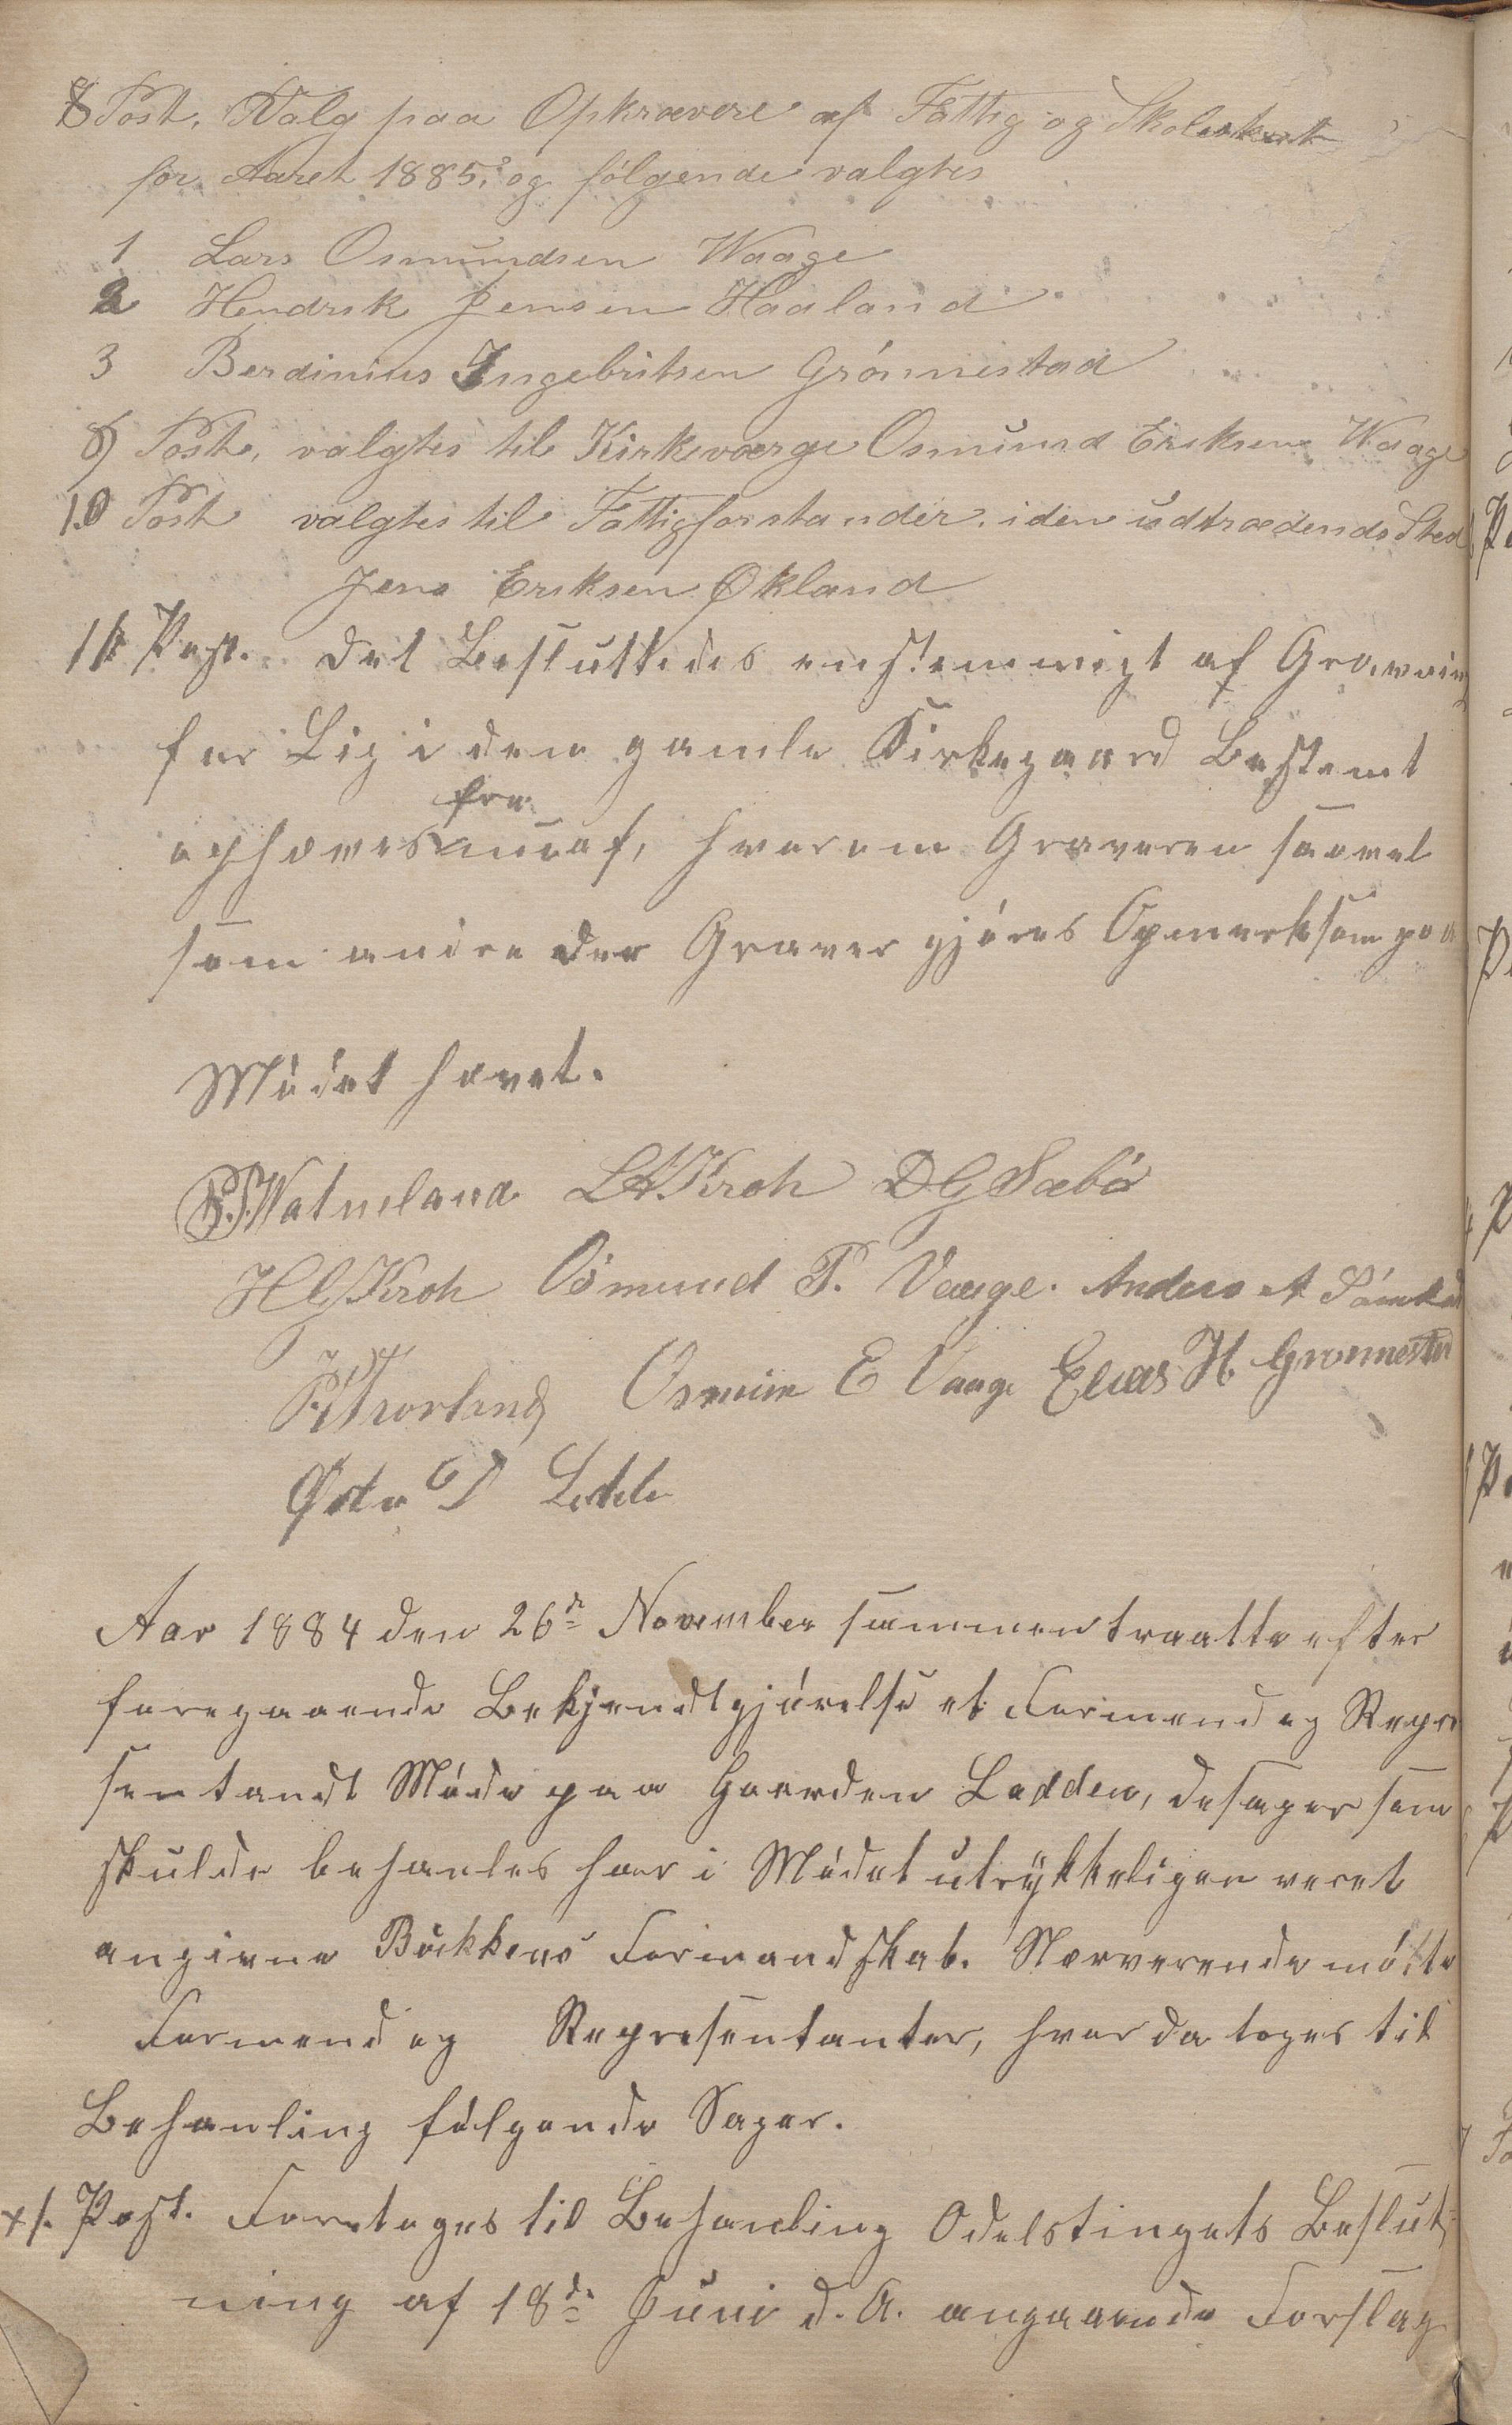 8 Post. Valg paa Opkrævere af Fattig og Skoleskat
for Aaret 1885, og følgende valgtes
1 Lars Osmundsen Waage
2 Hendrik Jensen Haaland
3 Berdinius Ingebritsen Grónnestad
9) Post, valgtes til Kirkeværge Osmund Eriksen Waage
10 Post valgtes til Fattigforstander i den udtrædends Sted
Jens Eriksen Økland
11 Post. Det Besluttedes enstemmigt af Gravning
for Lig i den gamle Kirkegaard Bestemt
fra
ophøves nuaf, hvorom Graveren saavel
som andre der Graver gjóres Opmerksom paa
Módet hævet.
Watneland L A Kroh D G Sæbó
H G Kroh Osmund P. Vaage. Anders A
Osmun E Vaage Elias H. Gronnestad
Aar 1884 den 26de November sammentraatte efter
foregaaende Bekjendtgjórelse et Formend og Repre
sentandt Móde paa Gaarden Ladden, desager som
skulde behanles har i Módet utrykkeligen veret
angivne Bókkens Formandskab. Nærverende mótte
Formend og Representanter, hvor da toges til
Behanling fólgende Sager.
x 1. Post. Foretoges til Behanling Odelstingets Beslut
ning af 18de Juni d. A. angaaende Forslag